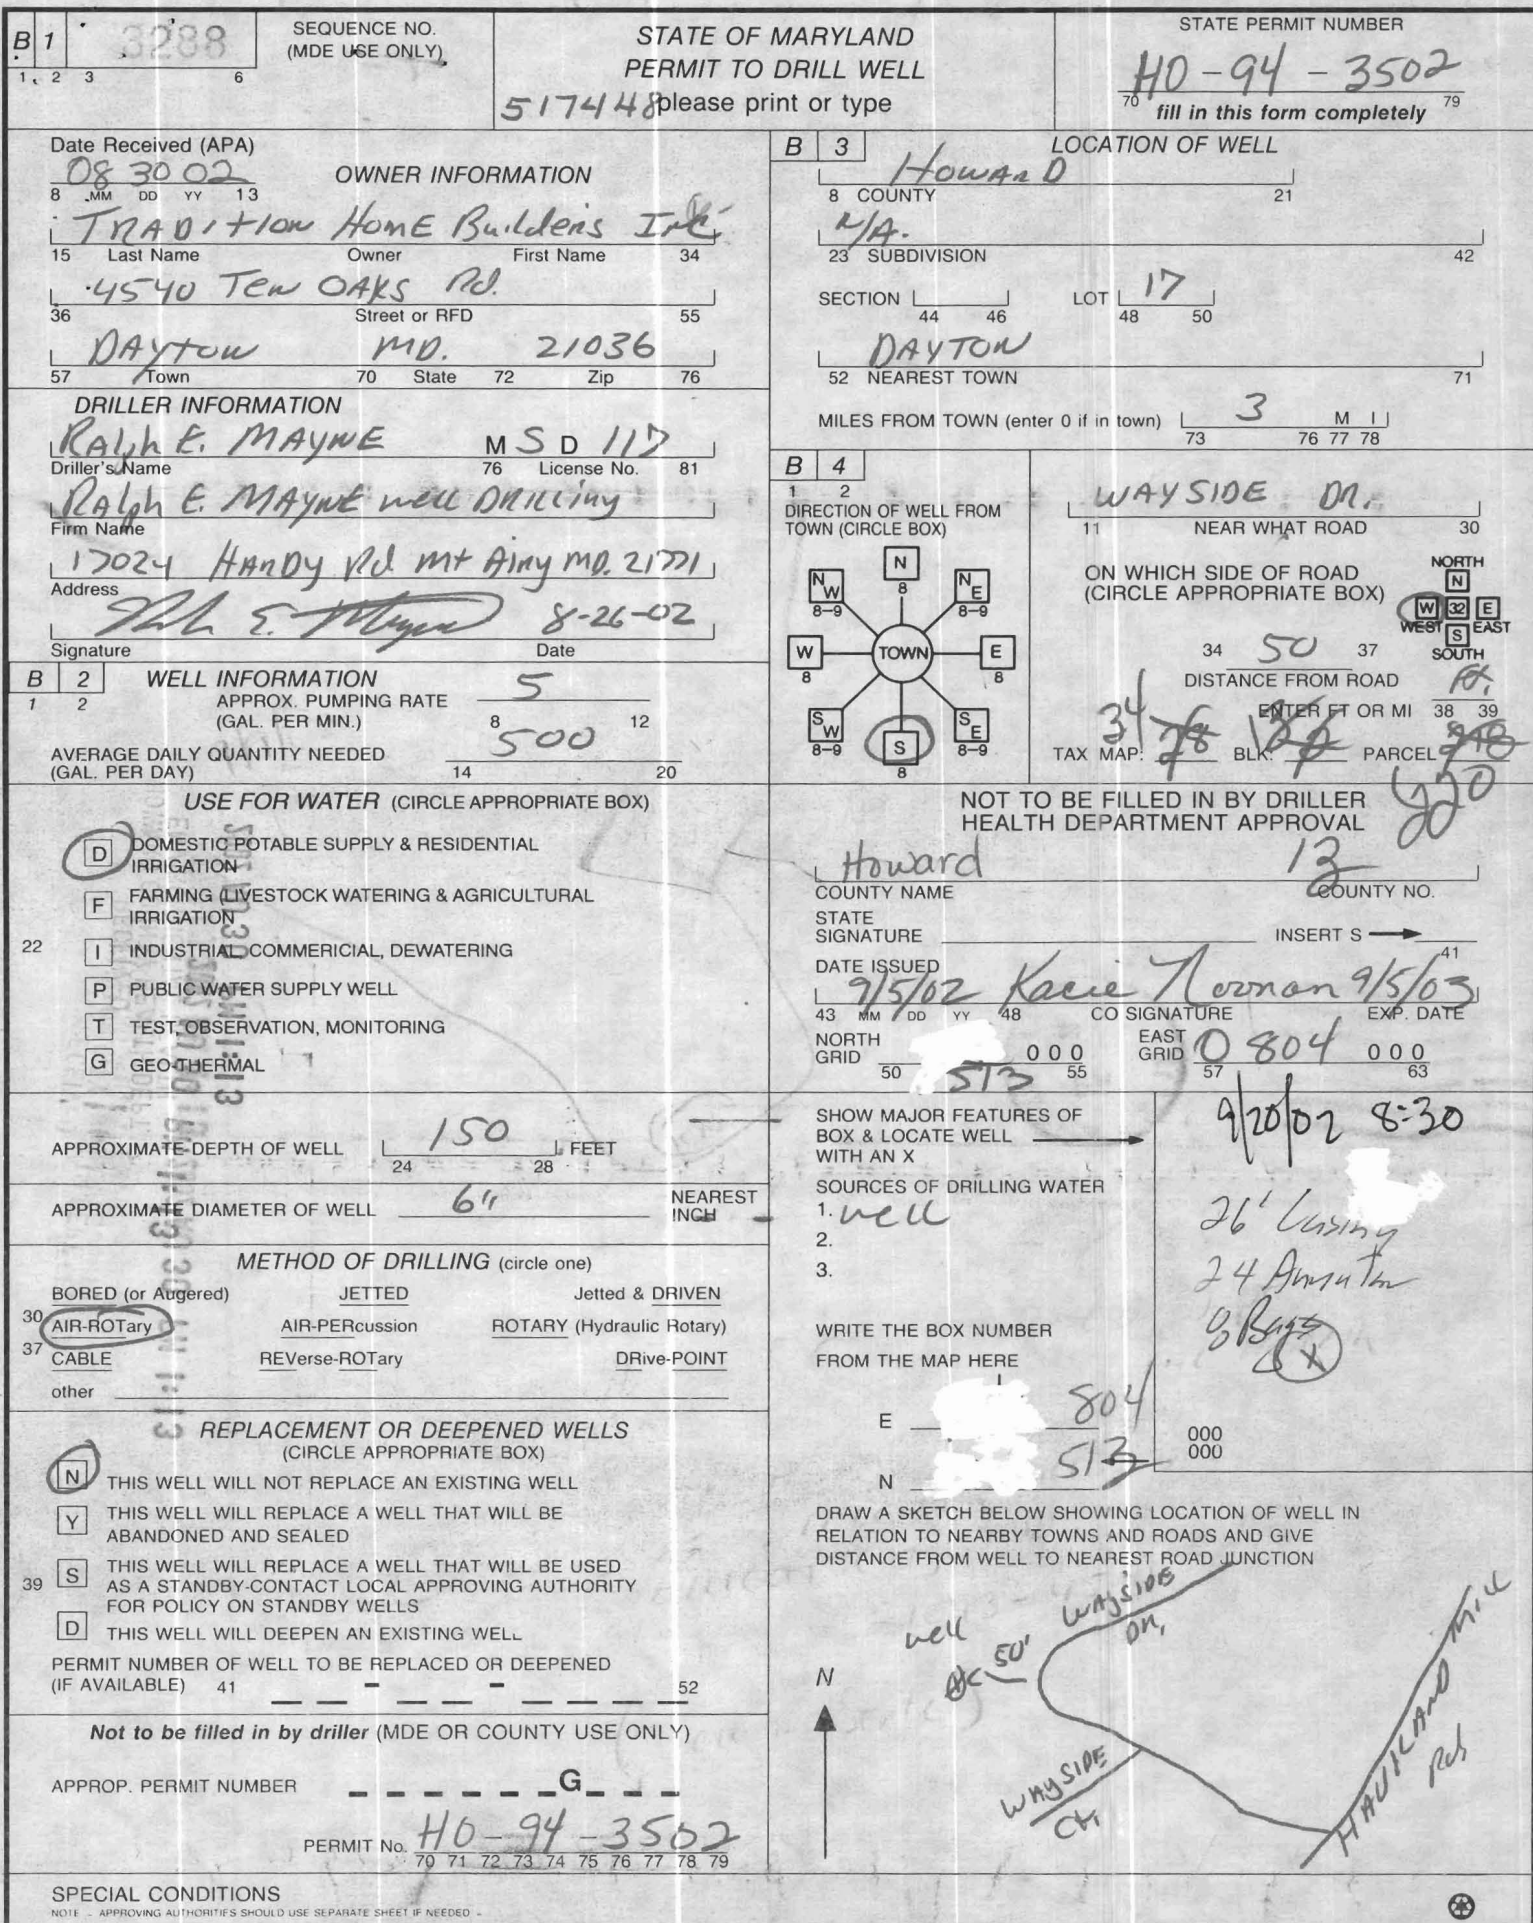 B 1
3288
1 2 3 6
SEQUENCE NO.
(MDE USE ONLY)
STATE OF MARYLAND
PERMIT TO DRILL WELL
517448 please print or type
STATE PERMIT NUMBER
HO-94-3502
70 79
fill in this form completely
Date Received (APA)
08 30 02
8 MM DD YY 13
OWNER INFORMATION
TRADITION HOME Builders Inc
15 Last Name Owner First Name 34
4540 Ten OAKS Rd.
36 Street or RFD 55
DAYTON MD. 21036
57 Town 70 State 72 Zip 76
DRILLER INFORMATION
RAlph E. MAYNE M S D 117
Driller's Name 76 License No. 81
RAlph E. MAYNE well DRilling
Firm Name
17024 HARDY Rd Mt Airy MD. 21771
Address
8-26-02
Signature Date
B 2
1 2
WELL INFORMATION
APPROX. PUMPING RATE
(GAL. PER MIN.)
5
8 12
AVERAGE DAILY QUANTITY NEEDED
(GAL. PER DAY)
500
14 20
USE FOR WATER (CIRCLE APPROPRIATE BOX)
D DOMESTIC POTABLE SUPPLY & RESIDENTIAL
IRRIGATION
F FARMING (LIVESTOCK WATERING & AGRICULTURAL
IRRIGATION
22
I INDUSTRIAL, COMMERICIAL, DEWATERING
P PUBLIC WATER SUPPLY WELL
T TEST, OBSERVATION, MONITORING
G GEO-THERMAL
APPROXIMATE DEPTH OF WELL 150 FEET
24 28
APPROXIMATE DIAMETER OF WELL 6" NEAREST
INCH
METHOD OF DRILLING (circle one)
BORED (or Augered) JETTED Jetted & DRIVEN
30 AIR-ROTary AIR-PERcussion ROTARY (Hydraulic Rotary)
37 CABLE REVerse-ROTary DRive-POINT
other
REPLACEMENT OR DEEPENED WELLS
(CIRCLE APPROPRIATE BOX)
N THIS WELL WILL NOT REPLACE AN EXISTING WELL
Y THIS WELL WILL REPLACE A WELL THAT WILL BE
ABANDONED AND SEALED
39 S THIS WELL WILL REPLACE A WELL THAT WILL BE USED
AS A STANDBY-CONTACT LOCAL APPROVING AUTHORITY
FOR POLICY ON STANDBY WELLS
D THIS WELL WILL DEEPEN AN EXISTING WELL
PERMIT NUMBER OF WELL TO BE REPLACED OR DEEPENED
(IF AVAILABLE) 41 - - 52
Not to be filled in by driller (MDE OR COUNTY USE ONLY)
APPROP. PERMIT NUMBER G
PERMIT No. HO-94-3502
70 71 72 73 74 75 76 77 78 79
SPECIAL CONDITIONS
NOTE - APPROVING AUTHORITIES SHOULD USE SEPARATE SHEET IF NEEDED -
B 3
LOCATION OF WELL
HOWARD
8 COUNTY 21
N/A.
23 SUBDIVISION 42
SECTION LOT 17
44 46 48 50
DAYTON
52 NEAREST TOWN 71
MILES FROM TOWN (enter 0 if in town) 3 M I
73 76 77 78
B 4
1 2
DIRECTION OF WELL FROM
TOWN (CIRCLE BOX)
N
8
NW
8-9
NE
8-9
W
8
TOWN
E
8
SW
8-9
S
8
SE
8-9
WAYSIDE DR.
11 NEAR WHAT ROAD 30
ON WHICH SIDE OF ROAD
(CIRCLE APPROPRIATE BOX)
NORTH
N
W 32 E
WEST EAST
S
SOUTH
34 50 37
DISTANCE FROM ROAD
ENTER FT OR MI
ft.
38 39
TAX MAP: 34 28 BLK: PARCEL 218
220
NOT TO BE FILLED IN BY DRILLER
HEALTH DEPARTMENT APPROVAL
Howard 13
COUNTY NAME COUNTY NO.
STATE
SIGNATURE INSERT S
41
DATE ISSUED
9/5/02 Kacie Noonan 9/5/03
43 MM DD YY 48 CO SIGNATURE EXP. DATE
NORTH
GRID 513 000
50 55
EAST
GRID 0 804 000
57 63
SHOW MAJOR FEATURES OF
BOX & LOCATE WELL
WITH AN X
SOURCES OF DRILLING WATER
1. well
2.
3.
WRITE THE BOX NUMBER
FROM THE MAP HERE
E 804
N 513
9/20/02 8:30
26' Casing
24
8 Bags
X
000
000
DRAW A SKETCH BELOW SHOWING LOCATION OF WELL IN
RELATION TO NEARBY TOWNS AND ROADS AND GIVE
DISTANCE FROM WELL TO NEAREST ROAD JUNCTION
N
well
50'
WAYSIDE
DR.
WAYSIDE
Ct.
HAVILAND Mill
Rd